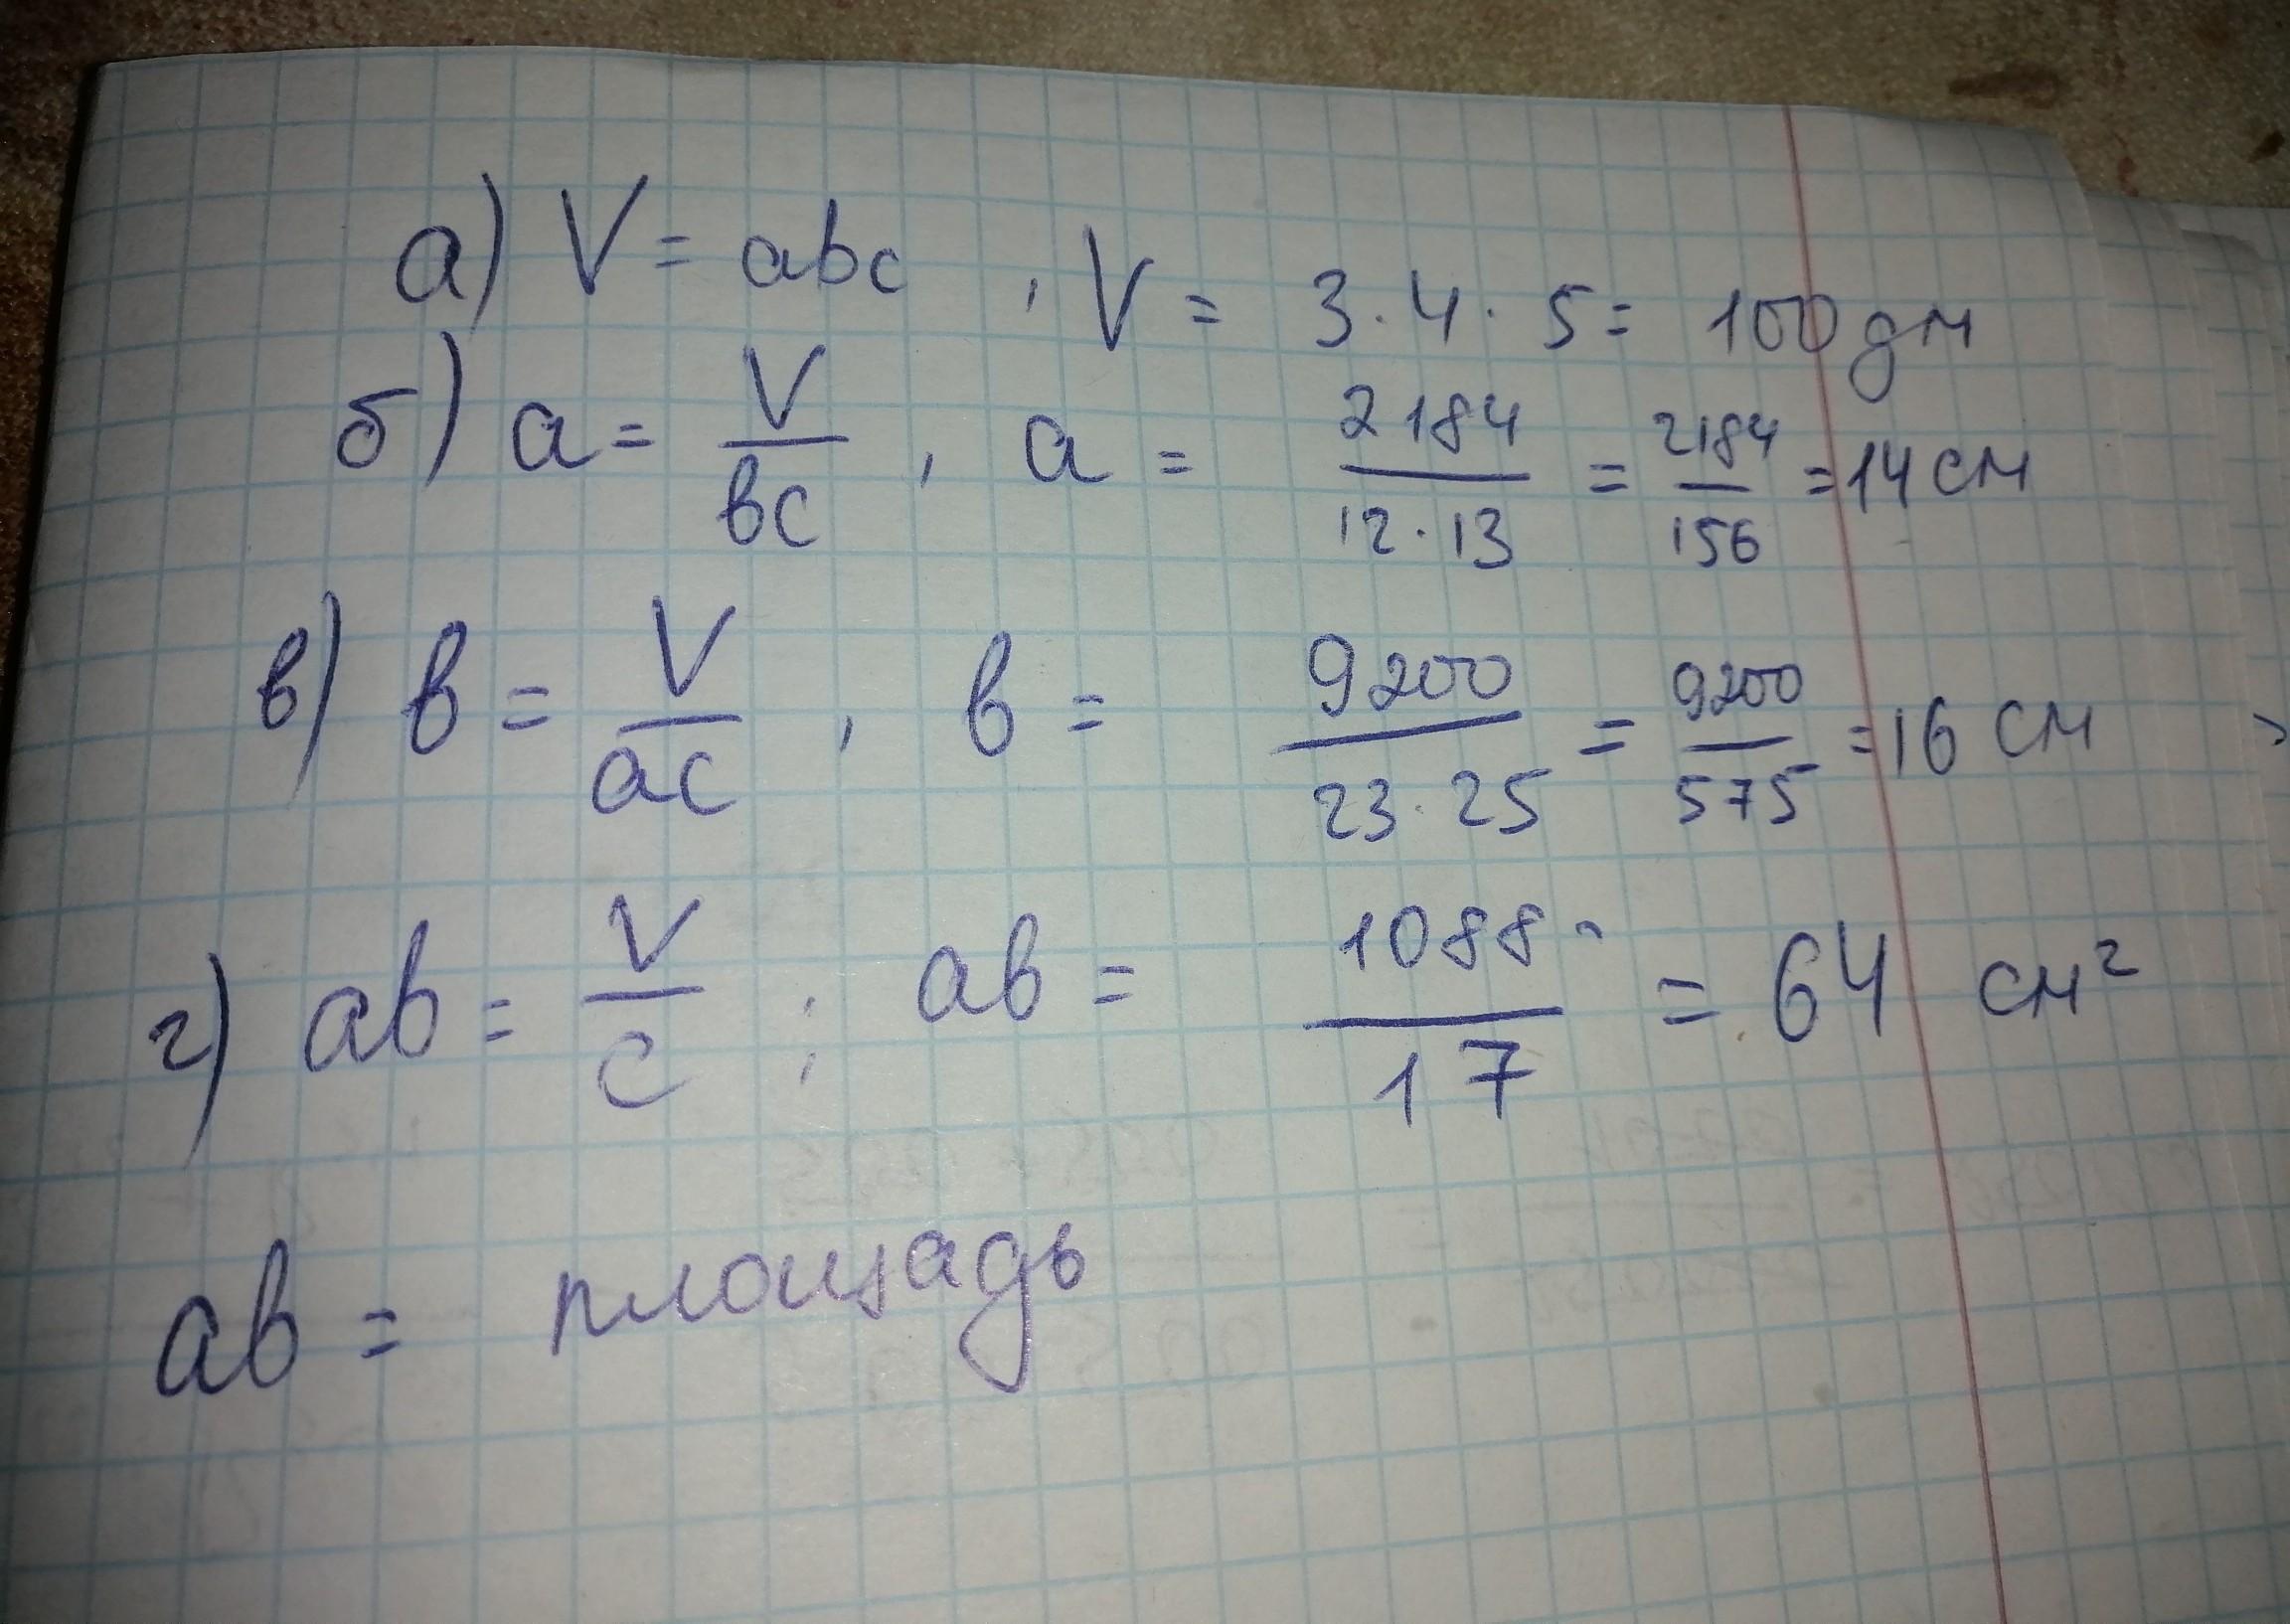 а) V = abc , V = 3 · 4 · 5 = 100 дм
б) a = V/bc , a = 2184/12 · 13 = 2184/156 = 14 см
в) b = V/ac , b = 9200/23 · 25 = 9200/575 = 16 см
г) ab = V/c ; ab = 1088/17 = 64 см²
ab = площадь